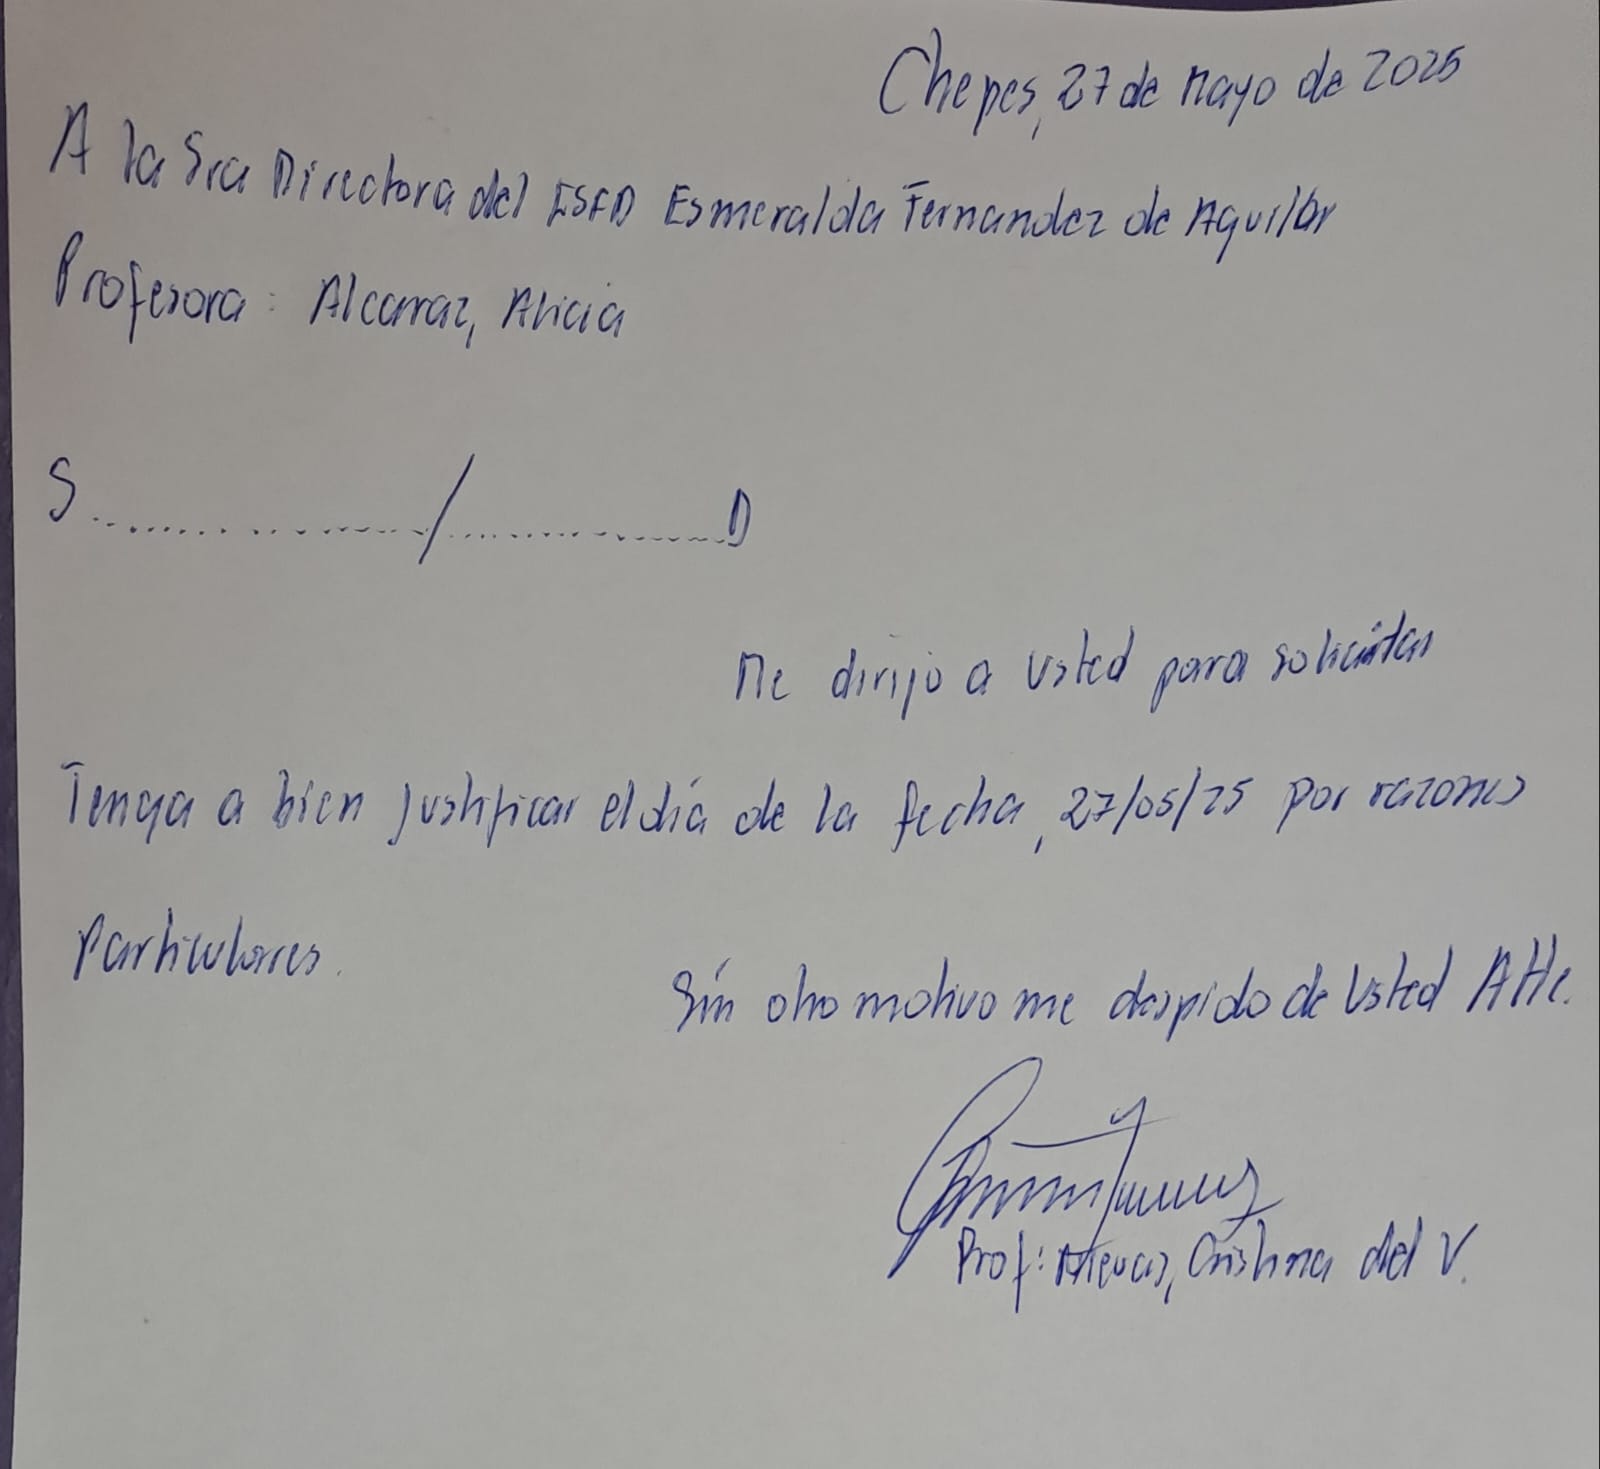 Chepes, 27 de Mayo de 2025
A la Sra Directora del ISFD Esmeralda Fernandez de Aguilar
Profesora: Alcarraz, Alicia
S......................../........................D
Me dirijo a Usted para solicitar
Tenga a bien justificar el día de la fecha, 27/05/25 por razones
Particulares.
Sin otro motivo me despido de Usted Atte.
Prof: Cristina del V.